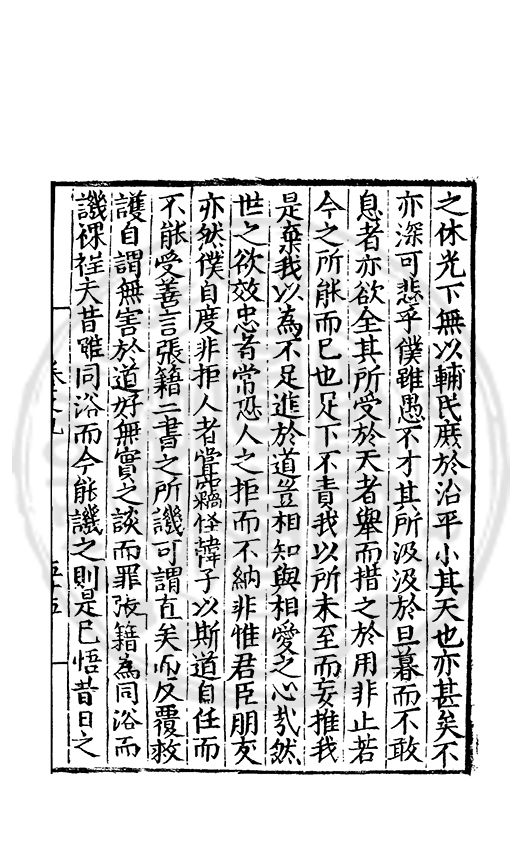 之休光下無以輔民庶於治平小其天也亦甚矣不
亦深可悲乎僕雖愚不才其所汲汲於旦暮而不敢
息者亦欲全其所受於天者舉而措之於用非止若
今之所能而已也足下不責我以所未至而妄推我
是棄我以為不足進於道豈相知與相愛之心哉然
世之欲效忠者常恐人之拒而不納非惟君臣朋友
亦然僕自度非拒人者嘗竊怪韓子以斯道自任而
不能受善言張籍二書之所譏可謂直矣而反覆救
護自謂無害於道好無實之談而罪張籍為同浴而
譏裸裎夫昔雖同浴而今能譏之則是已悟昔日之
卷之九
五十五